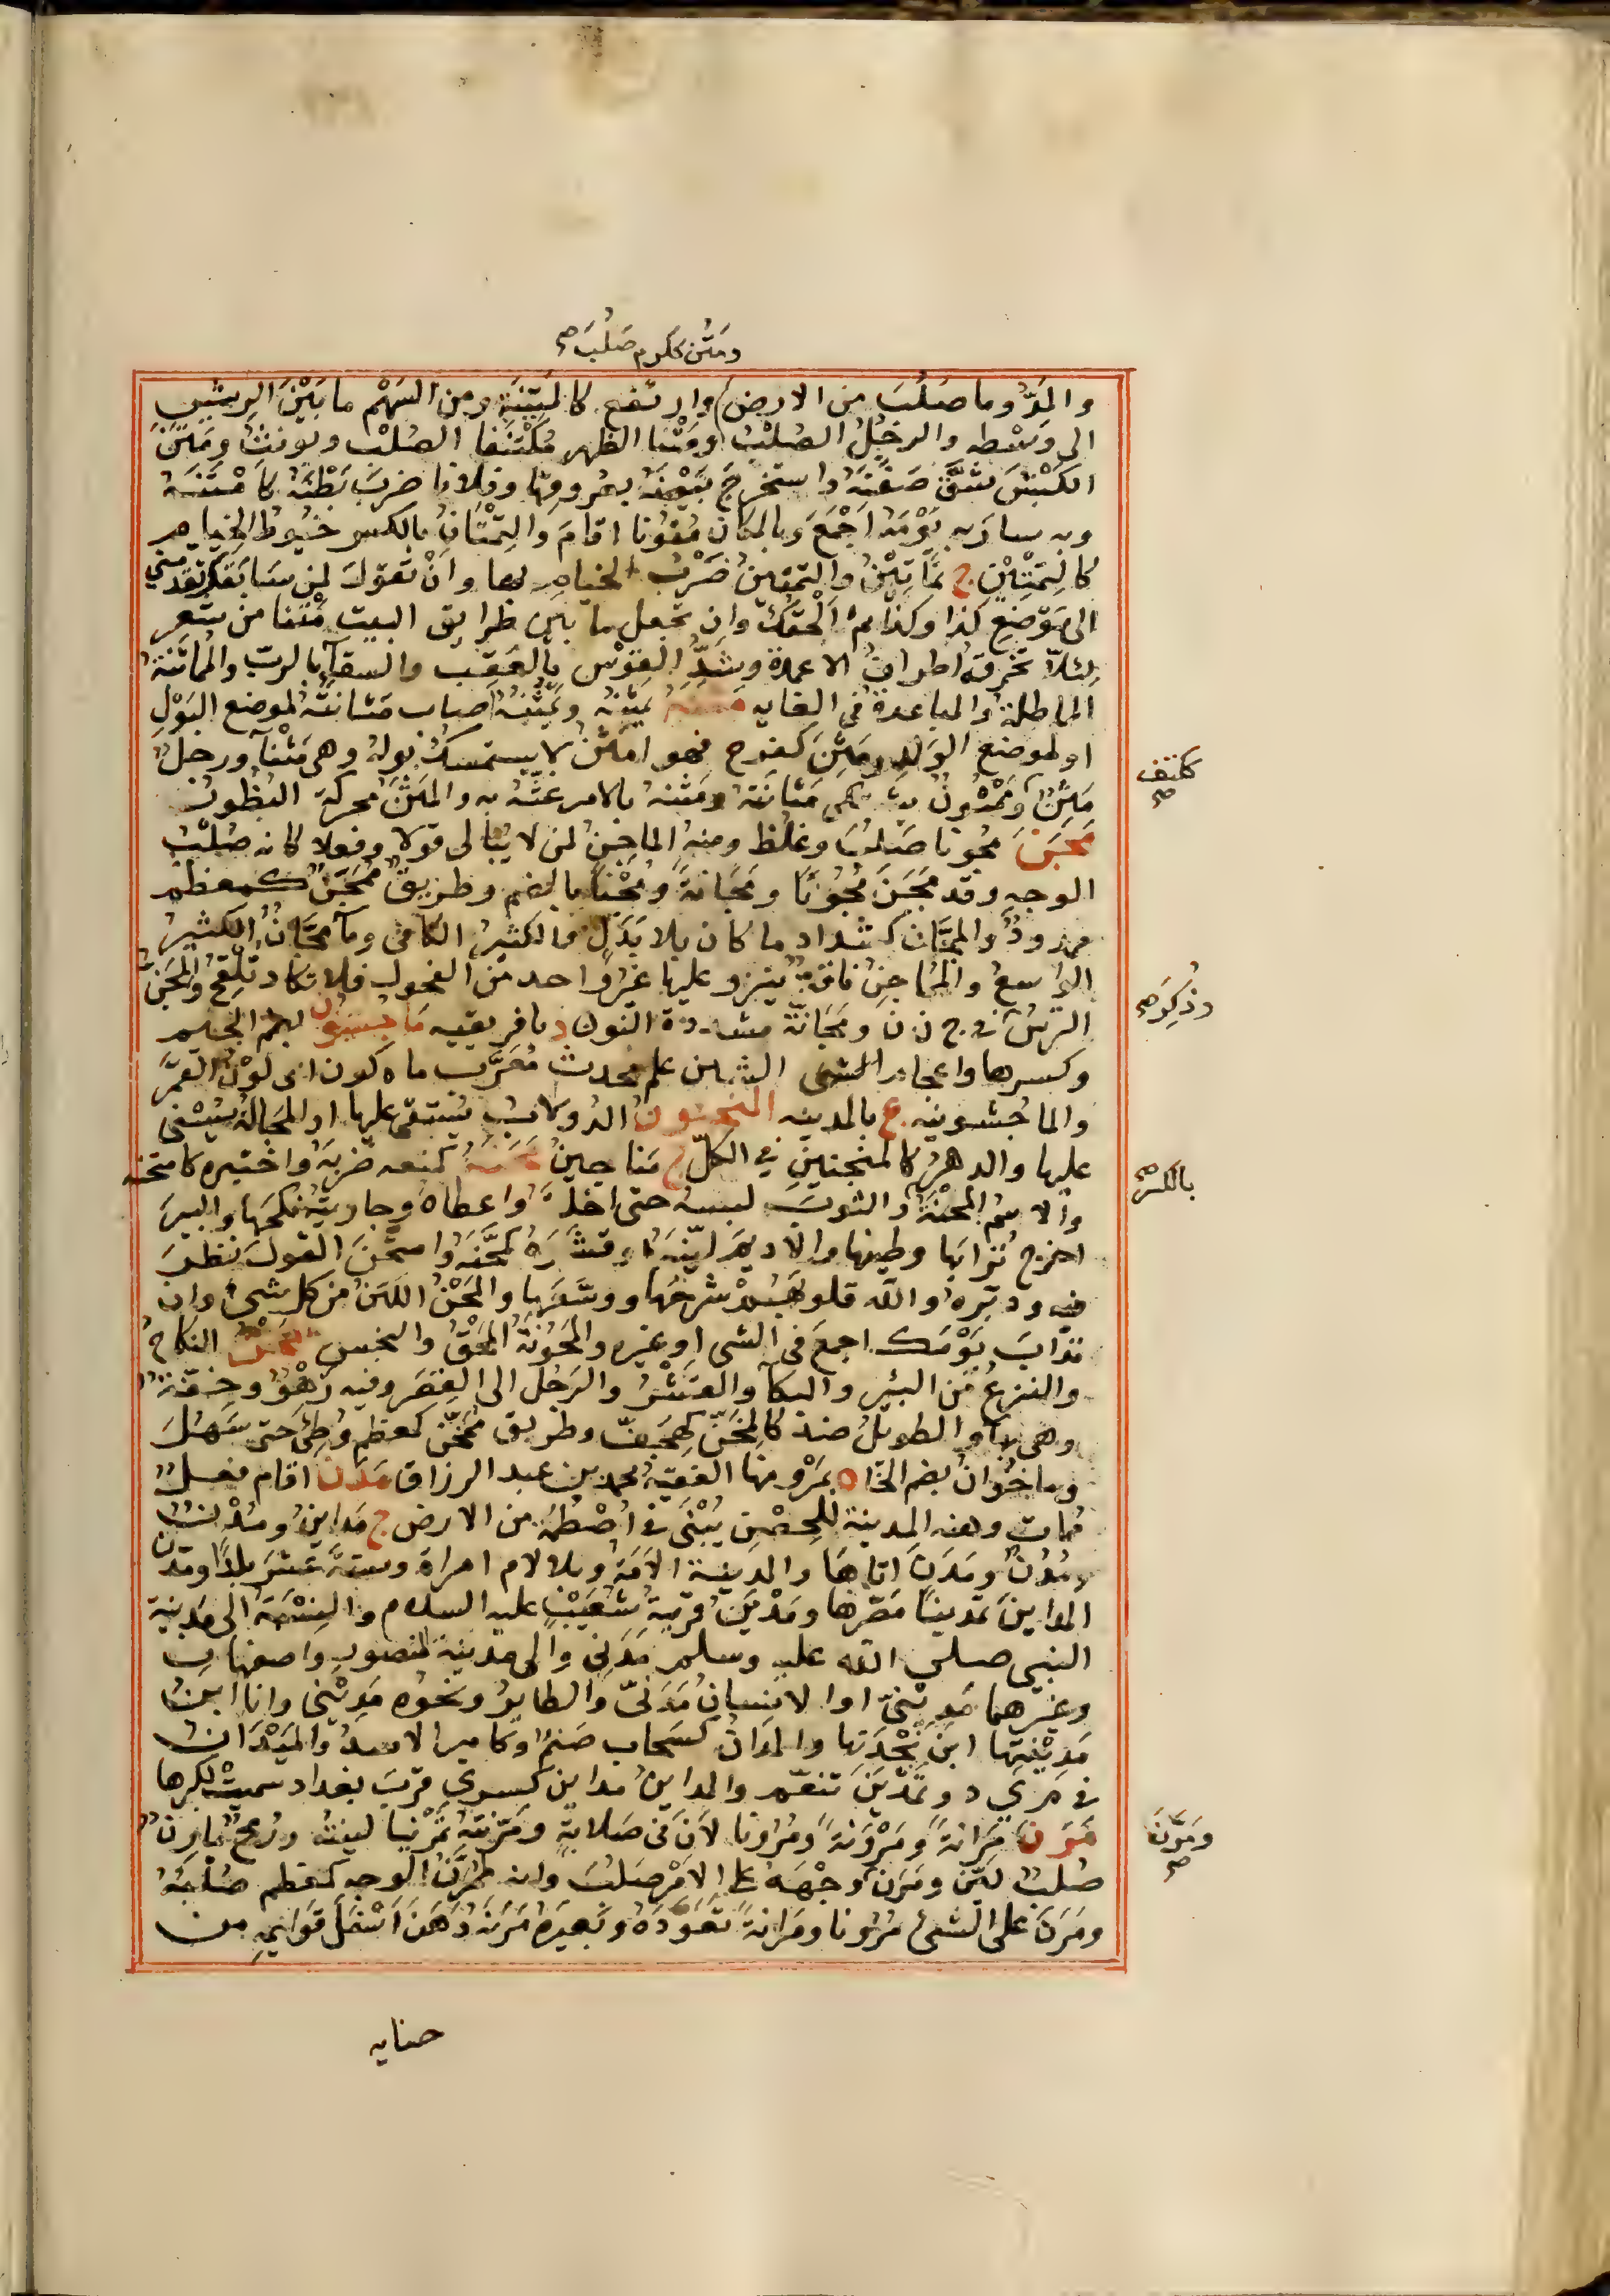 ومَتُن ككرم صَلُبَ صح
والمَدُّ وما صَلُبَ من الارض وارتفع كالمَتِنَةِ ومن السَهْمِ ما بَيْنَ الرِيشِ
الى وَسْطِه والرجُلُ الصُلْبُ ومَتْنا الظهر مُكْتَنَفا الصُلْب ويونثُ ومَتَنَ
الكَبْشَ شَقَّ صَفَنَهُ واستخرجَ بَيْضَهُ بعروقها وفلانا ضربَ مَتْنَهُ كامْتَنَهُ
وبه سارَ به يَوْمَهُ اَجْمَعَ وبالمكان مُتُونا اقامَ والتِمْتَانُ بالكسر خُيُوطُ الخيام
كالتِمْتِيْنِ ج تمَاتِيْنُ والتمتينُ ضَرْبُ الخيامِ بها وانْ تَقولَ لمن سابَقَكَ تقدمني
الى مَوْضعِ كذا وكذا ثم اَلْحَقُكَ وان تجعل ما بين طرايق البيت مُتُنا من شَعر
لِئَلاّ تخرقه اطرافُ الاعمدة وشَدُّ القوْسِ بالعَقِب والسقآء بالرب والمُماتَنَةُ
المماطلة والمباعدة في الغايه مَثَنَهُ يَمْثِنُه ويَمْثُنُهُ اصاب مَثانَتَهُ لموضع البَوْلِ
او لموضع الوَلَدِ ومَثِنَ كفرح فهو امْثَنُ لا يستمسك بوله وهى مَثْنآء ورجلٌ
مَثِنٌ ومَمْثُونٌ يشتكى مَثانَتَهُ ومَثَنَهُ بالامر غتَّهُ به والمَثَنُ محركة البُظُورُ
كتف صح
مَجَنَ مُجُونا صَلُبَ وغَلُظَ ومنه الماجِنُ لمن لا يُبالى قولا وفعلا كانه صُلْبُ
الوجهِ وقد مَجَنَ مُجُونًا ومَجَانَةً ومُجْنًا بالضم وطريقٌ مُمَجَّنٌ كمعظم
ممدودٌ والمجَّان كشداد ما كان بلا بَدَلٍ والكثيرُ الكافي ومآء مَجَّانٌ الكثيرُ
الواسعُ والمُماجِنُ ناقةٌ ينزو عليها غيرُ واحد من الفحول فلا تكاد تلقَحُ والمِجَنُّ
التُرسُ في ج ن ن ومَجَانَّة مشددة النون د بافريقيه مَاجُشون بضم الجيم
وذُكِرَ صح
وكسرها واعجام الشين علم محدث مُعَرَّب ماه كون اى لَوْنُ القَمَر
والماجُشونيه ع بالمدينه المنجنون الدولابُ يُستقى عليها او المَحالةُ يُسْنى
عليها والدهرُ كالمنجنينِ في الكلّ ج مَناجينُ مَحَنَهُ كمنعه ضربهُ واختبره كامتحنه
والاسمُ المِحْنَةُ والثوبَ لبسه حتى اخلَقَهُ واعطاه وجاريتَهُ نكحَها والبيرَ
بالكسر صح
اخرج تُرابَها وطينها والاديمَ ليَّنَهُ او قشَرَهُ كمَحَّنَهُ وامتحَنَ القولَ نظَرَ
فيه ودبَّره والله قلوبَهُمْ شرحَها ووسَّعَها والمَحْنُ اللَيِّنُ من كل شيءٍ وان
تدأبَ يَوْمَك اجمعَ فى الشى او غيره والمَحُونَةُ المَحْقُ والبخس المَخْنُ النكاحُ
والنزعُ من البئر والبكآء والقَشْرُ والرَجُلُ الى القِصَر وفيه زَهْوٌ وخِفَّةٌ
وهى بهآء والطويلُ ضدٌ كالمِخَنِّ كهِجَفٍّ وطريق مُمَخَّن كمعظم وُطِئَ حتى سَهُلَ
وماخُوَانُ بضم الخآء ه بمَرْو منها الفقيهُ محمد بن عبد الرزاق مَدَنَ اقام فعلٌ
مُمات ومنه المدينة للحِصْنِ يُبْنَى في اُصْطُمَّةِ من الارض ج مَداينُ ومُدْنٌ
ومُدُنٌ ومَدَنَ اتاهَا والمدينة الاَمَةُ وبلا لام امراة وستةَ عَشَرَ بلدًا ومَدَّنَ
المداينَ تمدينًا مَصَّرها ومَدْيَنُ قريةُ شُعَيْبٍ عليه السلام والنِسْبَةُ الى مَدِينة
النبى صلى الله عليه وسلم مَدَنِى والى مدينة المنصور واصفهان
وغيرهما مَدِيْنىّ او الانسانُ مَدَنىّ والطايرُ ونحوُه مَدِيْنى وانا ابنُ
مَدِيْنَتِها ابنُ بَجْدَتِها والمَدَانُ كسَحاب صَنَمٌ وكامير الاسدُ والمَيْدَانُ
في م ى د وتَمَدْيَنَ تنعّم والمداينُ مداين كسرى قربَ بغداد سميتْ لكبرها
مَرَنَ مَرَانَةً ومُرُوْنَةً ومُرُونا لاَنَ فى صَلابةٍ ومَرَّنْتُه تَمْرينا لينته ورُمحٌ مارنٌ
ومَرَّنَ صح
صُلْبٌ لَيّن ومَرَنَ وَجْهُهُ على الامْرِ صَلُبَ وانه لمُمَرَّنُ الوجه كمعظم صُلْبُهُ
ومَرَنَ على الشئ مُرُونا ومَرَانةً تعَوَّدَهُ وبَعيرَهُ مَرْنَه دَهَنَ اَسْفَلَ قَوَايمِهِ من